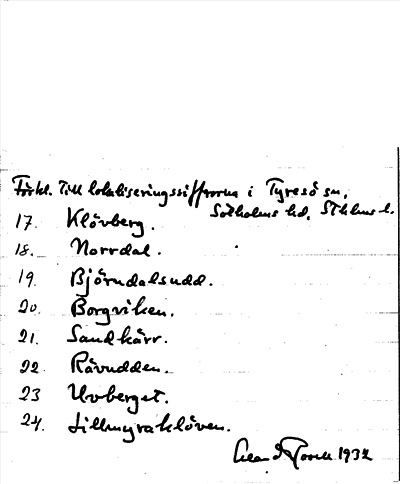 Förkl. till lokaliseringssiffrorna i Tyresö sn,
Sotholms hd, Sthlms l.
17. Klövberg.
18. Norrdal.
19. Björndalsudd.
20. Borgviken.
21. Sandkärr.
22 Rävudden.
23 Uvberget.
24. Lillmyraklöven.
1932